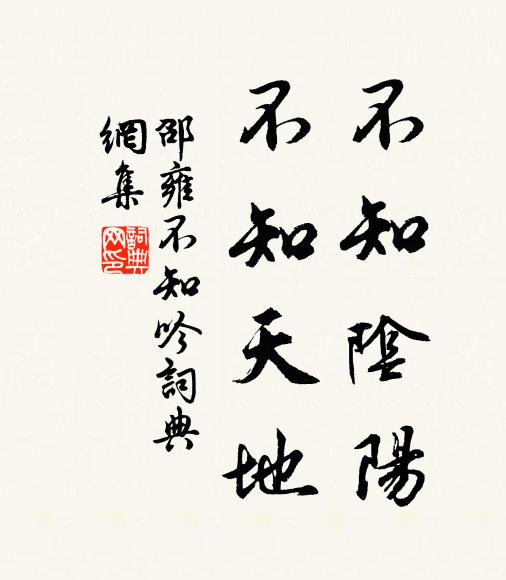 不知陰陽
不知天地
邵雍不知吟詞典
網集
詞典网印